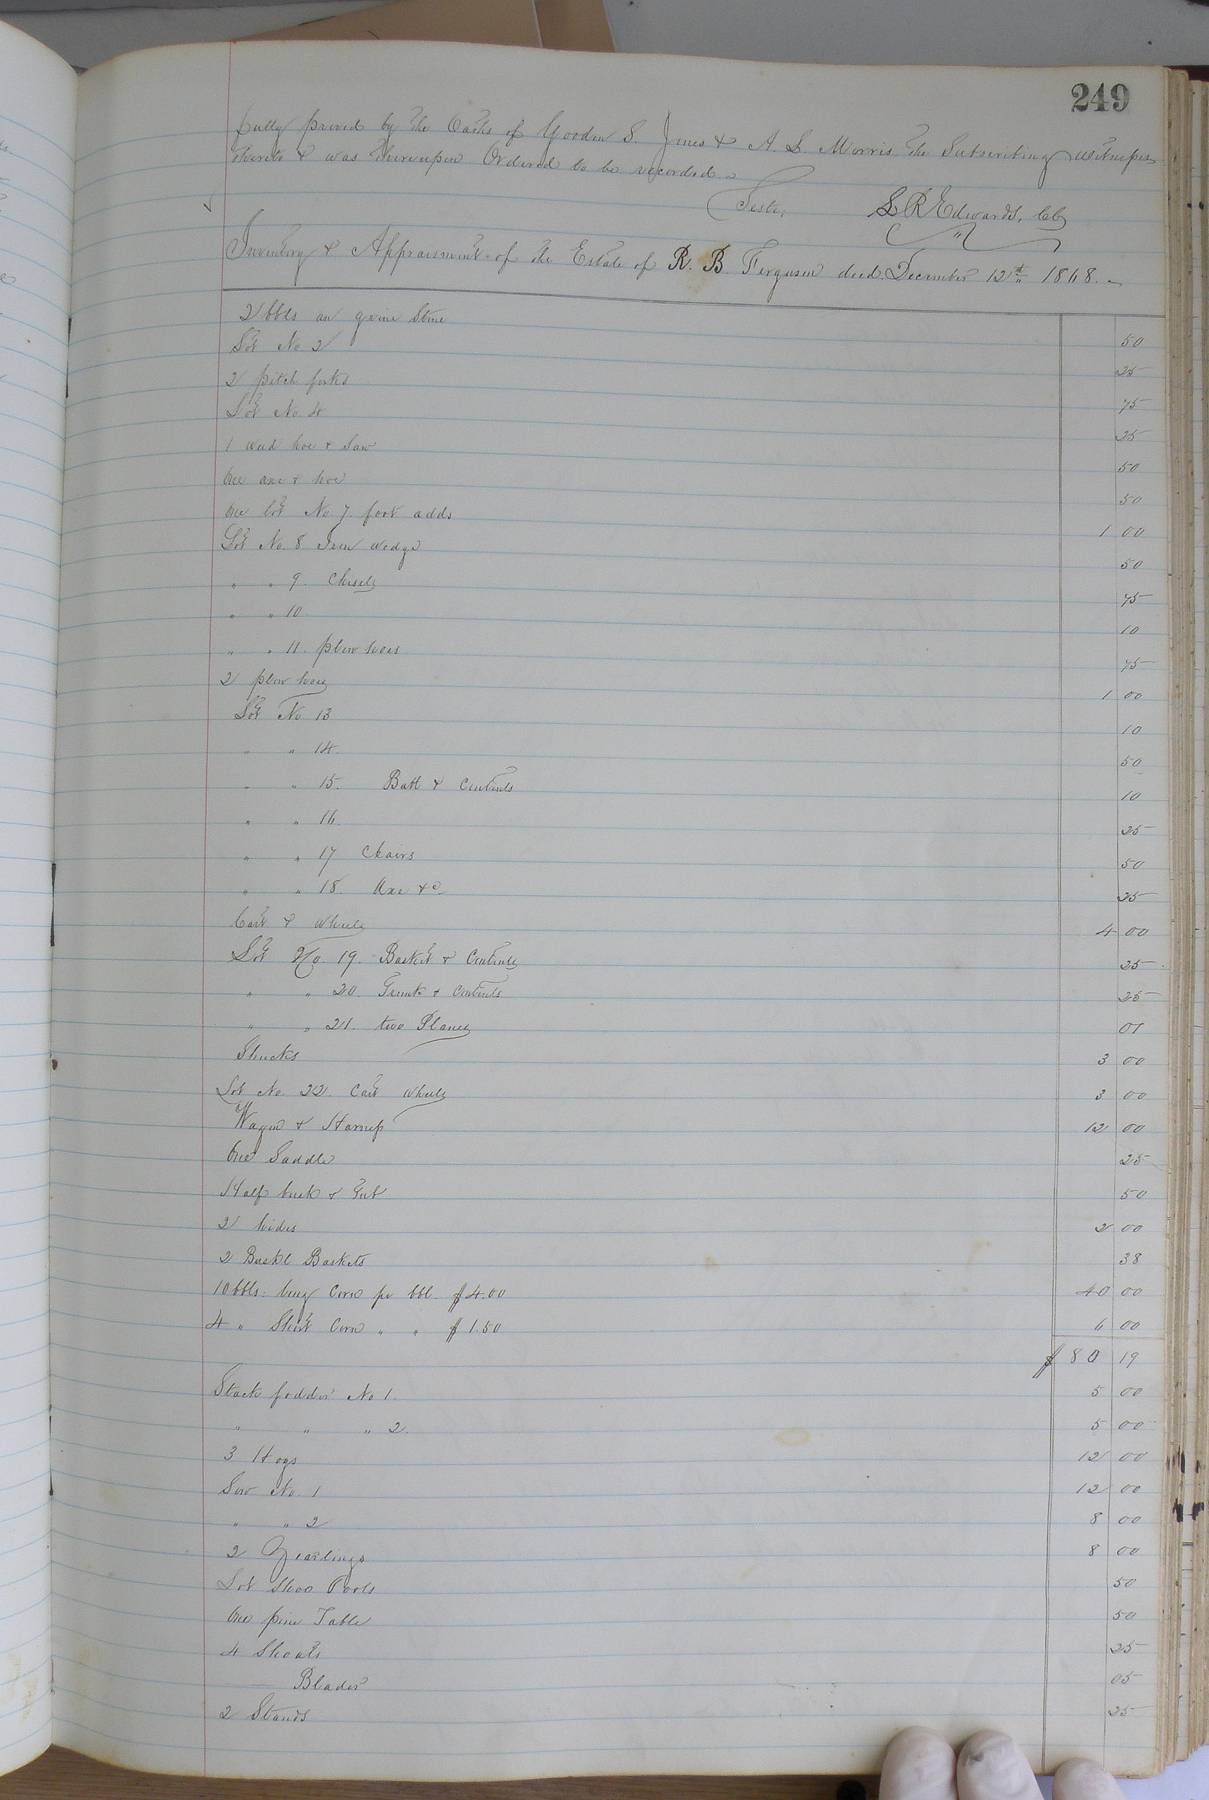 249
fully proved by the Oaths of Gooden S. Jones & A. S. Morris the Subscribing witnesses
thereto & was thereupon Ordered to be recorded.
Teste, S R Edwards, Clk
Inventory & Appraisment of the Estate of R. B. Ferguson decd. December 12th 1868.
2 bbls an grine Stone 50
Lot No 2 25
2 pitch forks 75
Lot No. 4 25
1 weed hoe & Saw 50
One axe & hoe 50
One lot No 7. foot adds 1 00
Lot No. 8 Iron wedge 50
" " 9. Chisels 75
" " 10 10
" " 11. plow hoes 75
2 plow hoes 1 00
Lot No. 13 10
" " 14. 50
" " 15. Batt & Contents 10
" " 16. 25
" " 17 Chairs 50
" " 18. Axe &c. 25
Cart & Wheels 4 00
Lot No. 19. Basket & Contents 25
" " 20. Trunk & Contents 25
" " 21. two Planes 01
Shucks 3 00
Lot No. 22. Cart Wheels 3 00
Wagon & Harness 12 00
One Saddle 25
Half bush & Tub 50
2 hides 2 00
2 Bushl Baskets 38
10 bbls. long Corn pr bbl. $4.00 40 00
4 " Short Corn " " $1.50 6 00
$80 19
Stack fodder No 1. 5 00
" " " 2. 5 00
3 Hogs 12 00
Sow No. 1 12 00
" " 2 8 00
2 Yearlings 8 00
Lot Shoo Tools 50
One pine Table 50
4 Shoats 25
Blades 05
2 Stands 25